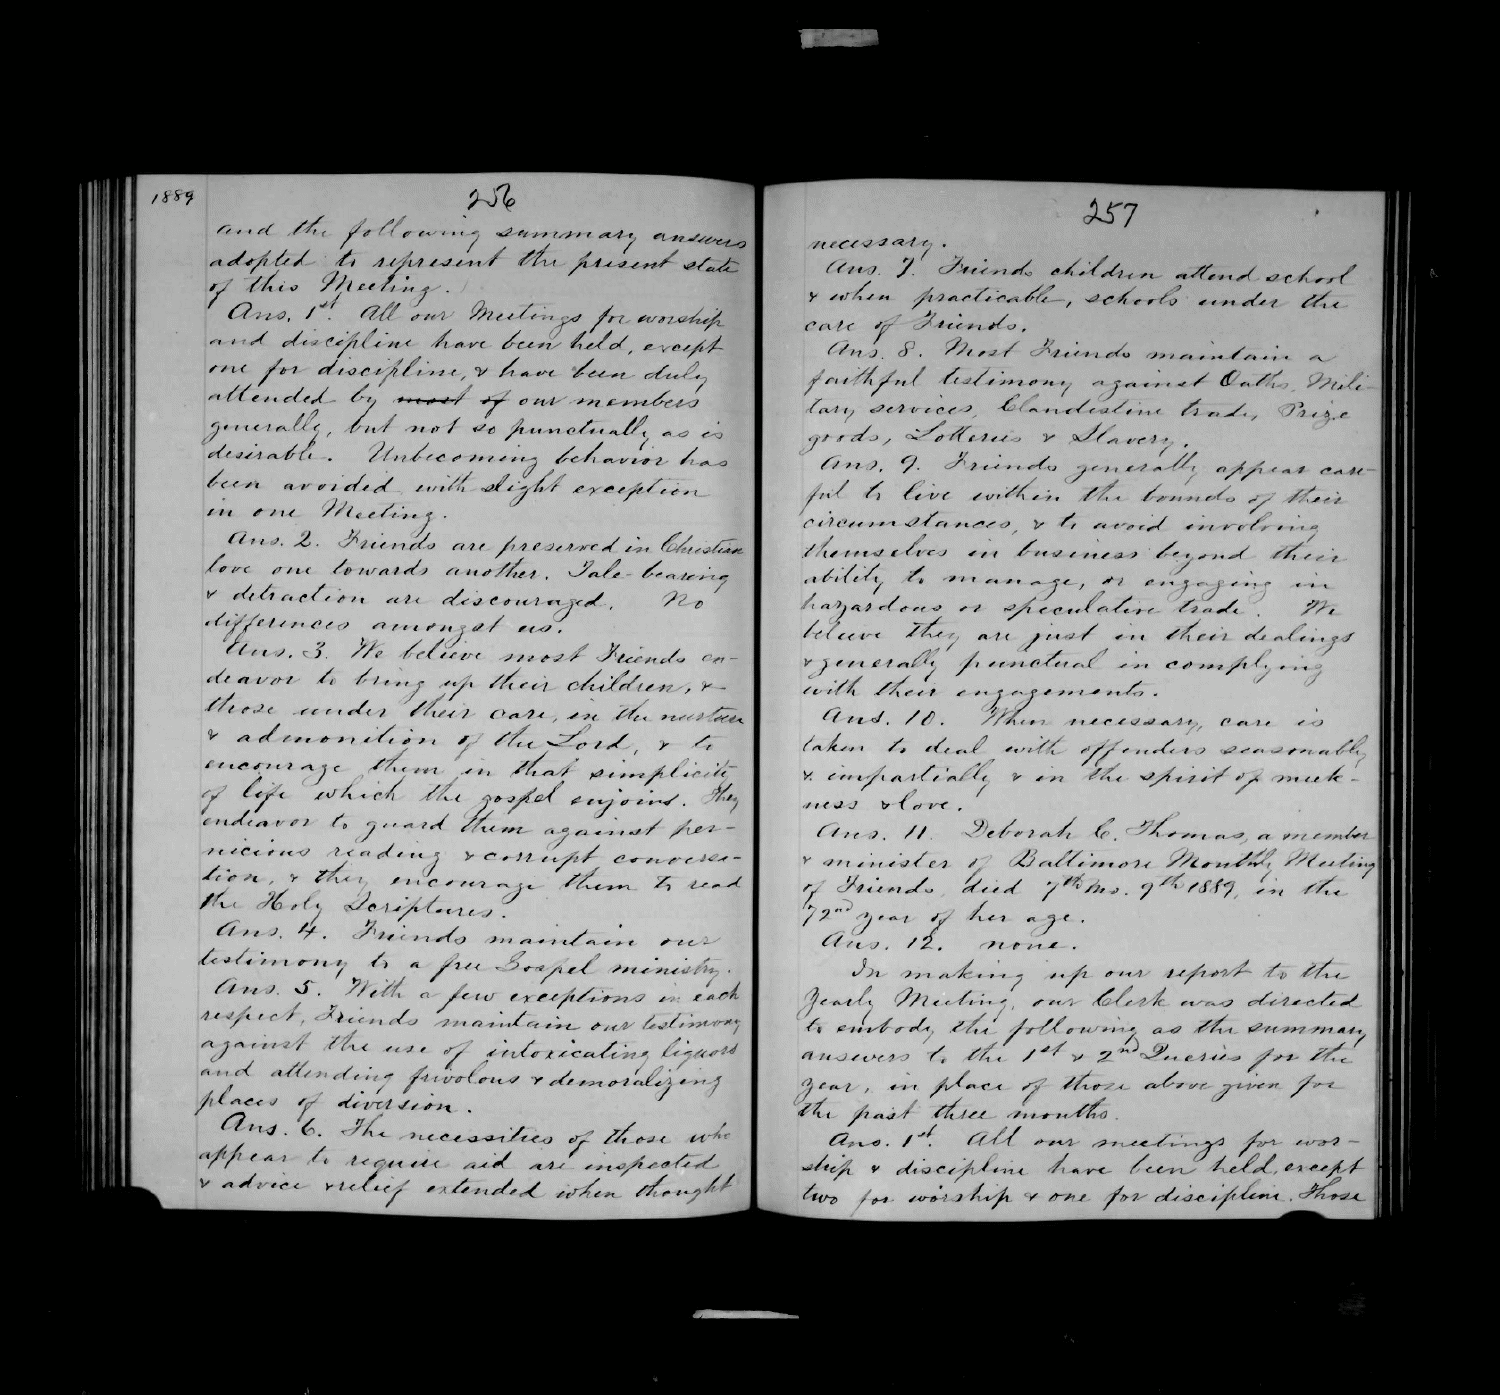 1889
256
and the following summary answers
adopted to represent the present state
of this Meeting.
Ans. 1st. All our Meetings for worship
and discipline have been held, except
one for discipline, & have been duly
attended by most of our members
generally, but not so punctually as is
desirable. Unbecoming behavior has
been avoided with slight exception
in one Meeting.
Ans. 2. Friends are preserved in Christian
love one towards another. Tale-bearing
& detraction are discouraged. No
differences amongst us.
Ans. 3. We believe most Friends en-
deavor to bring up their children, &
those under their care, in the nurture
& admonition of the Lord, & to
encourage them in that simplicity
of life which the gospel enjoins. They
endeavor to guard them against per-
nicious reading & corrupt conversa-
tion, & they encourage them to read
the Holy Scriptures.
Ans. 4. Friends maintain our
testimony to a free Gospel ministry.
Ans. 5. With a few exceptions in each
respect, Friends maintain our testimony
against the use of intoxicating liquors
and attending frivolous & demoralizing
places of diversion.
Ans. 6. The necessities of those who
appear to require aid are inspected
& advice & relief extended when thought
257
necessary.
Ans. 7. Friends children attend school
& when practicable, schools under the
care of Friends.
Ans. 8. Most Friends maintain a
faithful testimony against Oaths, Mili-
tary services, Clandestine trade, Prize
goods, Lotteries & Slavery.
Ans. 9. Friends generally appear care-
ful to live within the bounds of their
circumstances, & to avoid involving
themselves in business beyond their
ability to manage, or engaging in
hazardous or speculative trade. We
believe they are just in their dealings
& generally punctual in complying
with their engagements.
Ans. 10. When necessary, care is
taken to deal with offenders seasonably
& impartially & in the spirit of meek-
ness & love.
Ans. 11. Deborah C. Thomas, a member
& minister of Baltimore Monthly Meeting
of Friends, died 7th Mo. 9th 1889, in the
72nd year of her age.
Ans. 12. none.
In making up our report to the
Yearly Meeting, our Clerk was directed
to embody the following as the summary
answers to the 1st & 2nd Queries for the
year, in place of those above given for
the past three months.
Ans. 1st. All our meetings for wor-
ship & discipline have been held, except
two for worship & one for discipline. Those